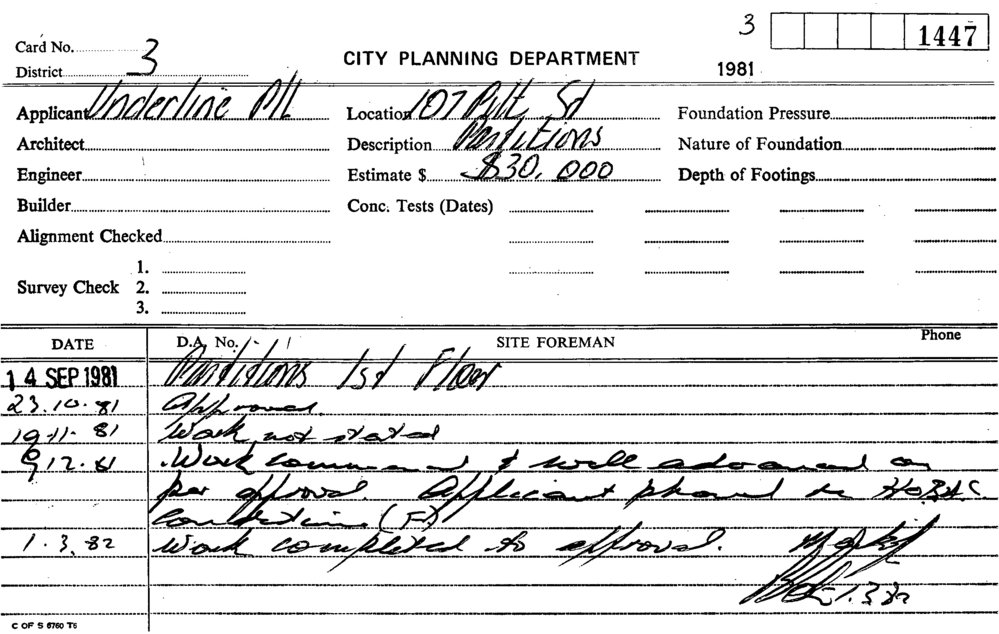 3 1447
Card No. 3
CITY PLANNING DEPARTMENT
District
1981
Applicant Underline P/L Location 107 Pitt St Foundation Pressure
Architect Description Partitions Nature of Foundation
Engineer Estimate $ $30,000 Depth of Footings
Builder Conc. Tests (Dates)
Alignment Checked
1.
Survey Check 2.
3.
DATE D.A. No. SITE FOREMAN Phone
14 SEP 1981 Partitions 1st Floor
23.10.81 Approved.
19.11.81 Work not stated
9.12.81 Work commenced & well advanced as
per approval. Applicant phoned re
(F)
1.3.82 Work completed to approval.
1.3.82
C OF S 6760 T5